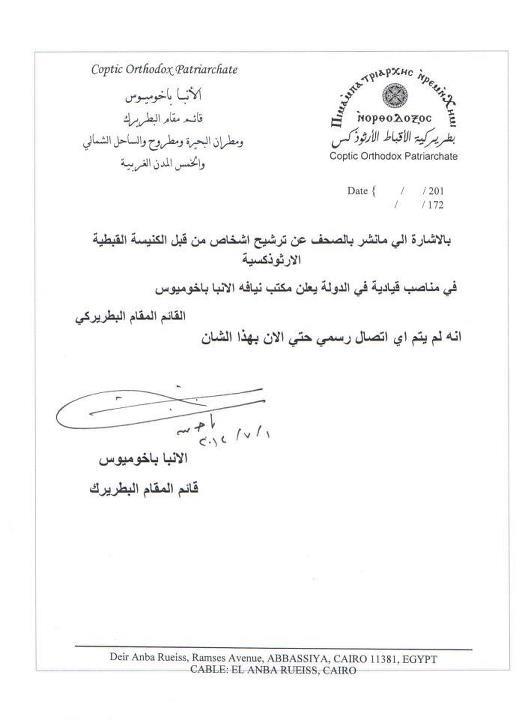 Coptic Orthodox Patriarchate
الأنبا باخوميوس
قائم مقام البطريرك
ومطران البحيرة ومطروح والساحل الشمالي
والخمس المدن الغربية
بطريركية الأقباط الأرثوذكس
Coptic Orthodox Patriarchate
Date { / / 201
/ / 172
بالاشارة الي مانشر بالصحف عن ترشيح اشخاص من قبل الكنيسة القبطية
الارثوذكسية
في مناصب قيادية في الدولة يعلن مكتب نيافه الانبا باخوميوس
القائم المقام البطريركي
انه لم يتم اي اتصال رسمي حتي الان بهذا الشان
٢٠١٢/٧/١
الانبا باخوميوس
قائم المقام البطريرك
Deir Anba Rueiss, Ramses Avenue, ABBASSIYA, CAIRO 11381, EGYPT
CABLE: EL ANBA RUEISS, CAIRO